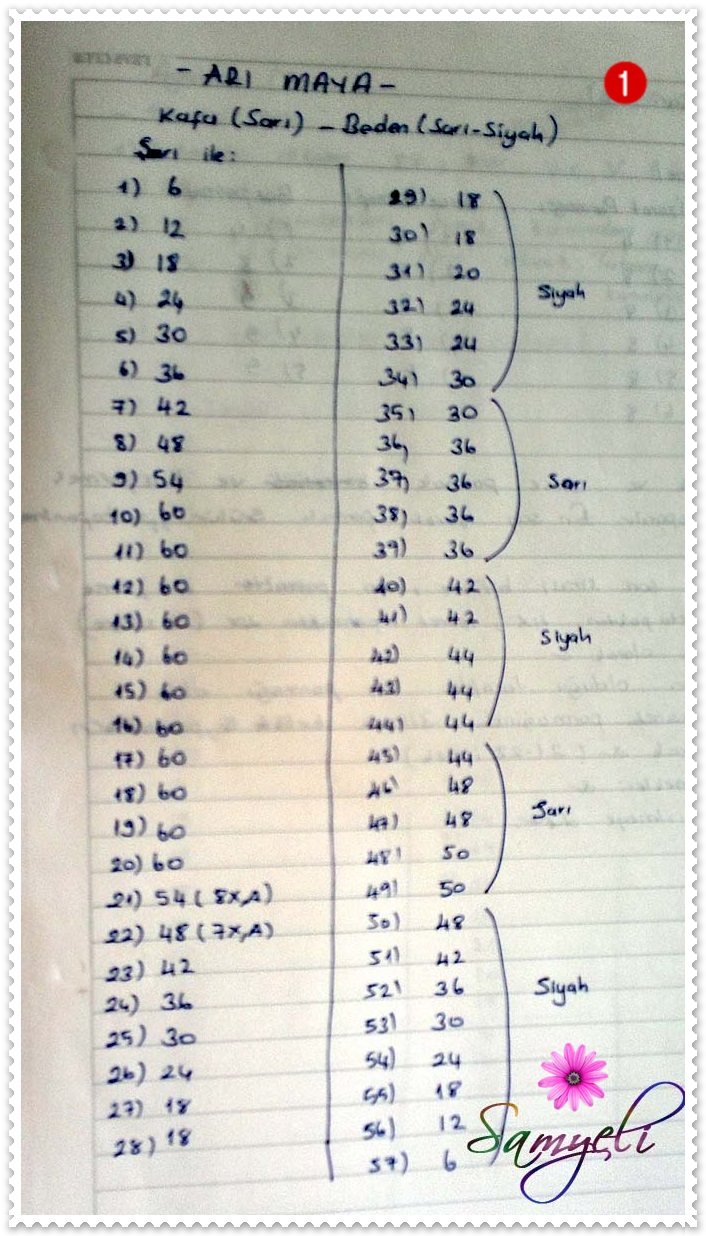 - ARI MAYA -
1
Kafa (Sarı) - Beden (Sarı-Siyah)
Sarı ile:
1) 6
2) 12
3) 18
4) 24
5) 30
6) 36
7) 42
8) 48
9) 54
10) 60
11) 60
12) 60
13) 60
14) 60
15) 60
16) 60
17) 60
18) 60
19) 60
20) 60
21) 54 (8x,A)
22) 48 (7x,A)
23) 42
24) 36
25) 30
26) 24
27) 18
28) 18
29) 18
30) 18
31) 20
32) 24
33) 24
34) 30
Siyah
35) 30
36) 36
37) 36
38) 36
39) 36
Sarı
40) 42
41) 42
42) 44
43) 44
44) 44
Siyah
45) 44
46) 48
47) 48
48) 50
49) 50
Sarı
50) 48
51) 42
52) 36
53) 30
54) 24
55) 18
56) 12
57) 6
Siyah
Samyeli